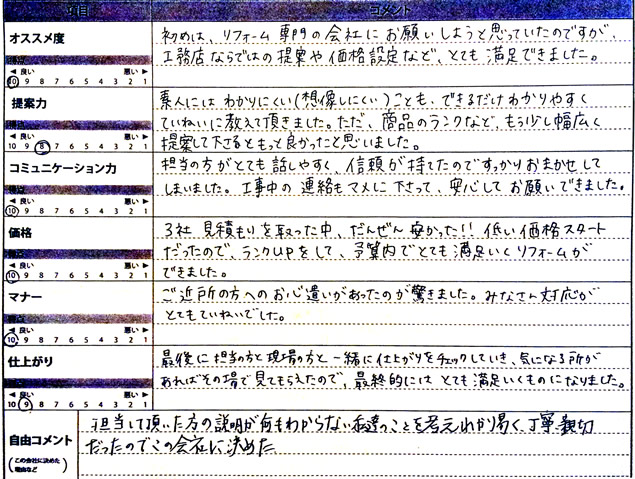 項目 コメント
オススメ度
◀ 良い 悪い ▶
10 9 8 7 6 5 4 3 2 1
初めは、リフォーム専門の会社にお願いしようと思っていたのですが、
工務店ならではの提案や価格設定など、とても満足できました。
提案力
◀ 良い 悪い ▶
10 9 8 7 6 5 4 3 2 1
素人にはわかりにくい(想像しにくい)ことも、できるだけわかりやすく
ていねいに教えて頂きました。ただ、商品のランクなど、もう少し幅広く
提案して下さるともっと良かったと思いました。
コミュニケーション力
◀ 良い 悪い ▶
10 9 8 7 6 5 4 3 2 1
担当の方がとても話しやすく、信頼が持てたのですっかりおまかせして
しまいました。工事中の連絡もマメに下さって、安心してお願いできました。
価格
◀ 良い 悪い ▶
10 9 8 7 6 5 4 3 2 1
3社見積もりを取った中、だんぜん安かった!! 低い価格スタート
だったので、ランクUPをして、予算内でとても満足いくリフォームが
できました。
マナー
◀ 良い 悪い ▶
10 9 8 7 6 5 4 3 2 1
ご近所の方へのお心遣いがあったのが驚きました。みなさん対応が
とてもていねいでした。
仕上がり
◀ 良い 悪い ▶
10 9 8 7 6 5 4 3 2 1
最後に担当の方と現場の方と一緒に仕上がりをチェックしていき、気になる所が
あればその場で見てもらえたので、最終的にはとても満足いくものになりました。
自由コメント
(この会社に決めた理由など)
担当して頂いた方の説明が何もわからない私達のことを考えわかり易く、丁寧、親切
だったのでこの会社に決めた